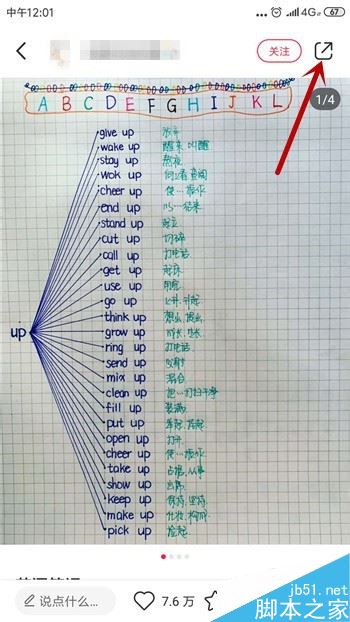 中午12:01
4G 67
关注
A B C D E F G H I J K L
1/4
give up 放弃
wake up 醒来 叫醒
stay up 熬夜
wok up
cheer up 使…振作
end up 以…结束
stand up 起立
cut up 切碎
call up 打电话
get up 起床
use up 用完
go up 上升,升起
think up 想出,提出
grow up 成长,生长
ring up 打电话
send up 发射
mix up 混合
clean up 把…打扫干净
fill up 装满
put up 举起,搭起
open up 打开
cheer up 使…振作
take up 占据,从事
show up 出席
keep up 保持,坚持
make up 化妆,构成
pick up 捡起
up
说点什么...
7.6 万
jb51.net
脚本之家